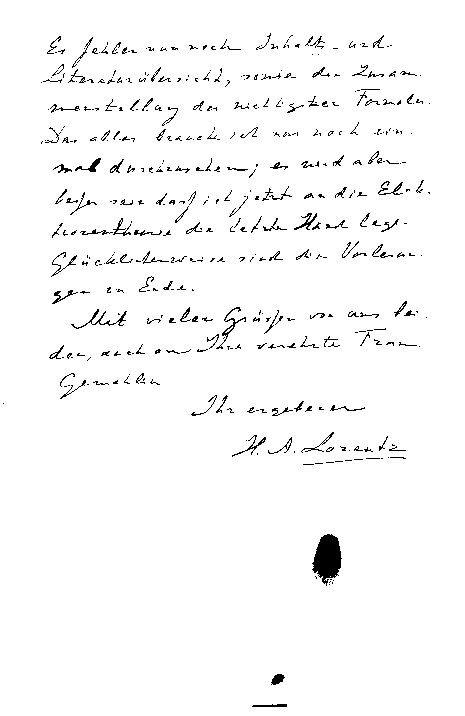 Es fehlen nun noch Inhalts- und
Literaturübersicht, sowie die Zusam-
menstellung der wichtigsten Formeln.
Das alles brauche ich nur noch ein-
mal durchzusehen; es wird aber
besser sein dass ich jetzt an die Elek-
tronentheorie die letzte Hand lege.
Glücklicherweise sind die Vorlesun-
gen zu Ende.
Mit vielen Grüssen von uns bei-
den, auch an Ihre verehrte Frau
Gemahlin
Ihr ergebener
H. A. Lorentz